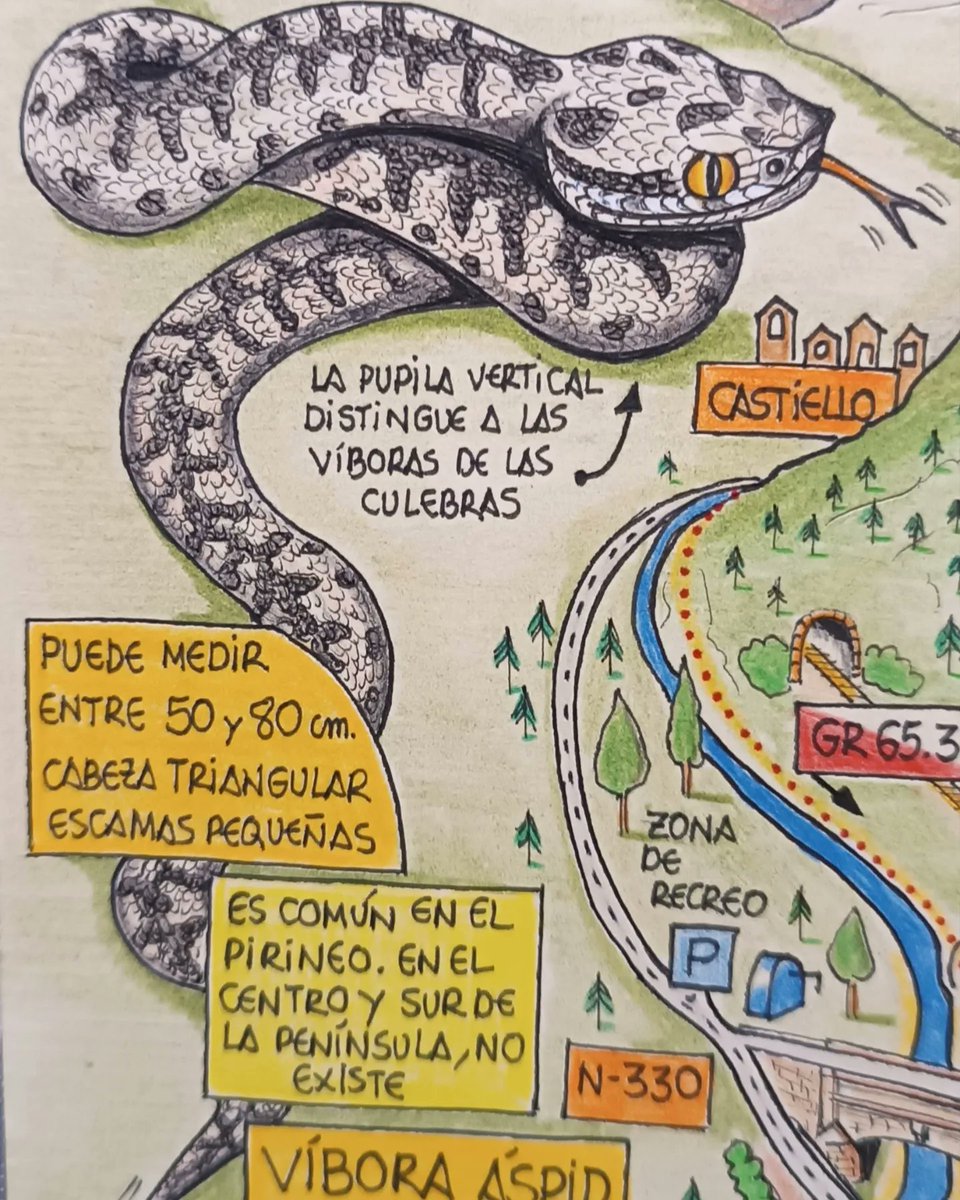 LA PUPILA VERTICAL
DISTINGUE A LAS
VÍBORAS DE LAS
CULEBRAS
CASTIELLO
PUEDE MEDIR
ENTRE 50 y 80 cm.
CABEZA TRIANGULAR
ESCAMAS PEQUEÑAS
GR 65.3
ZONA
DE
RECREO
P
ES COMÚN EN EL
PIRINEO. EN EL
CENTRO Y SUR DE
LA PENÍNSULA, NO
EXISTE
N-330
VÍBORA ÁSPID